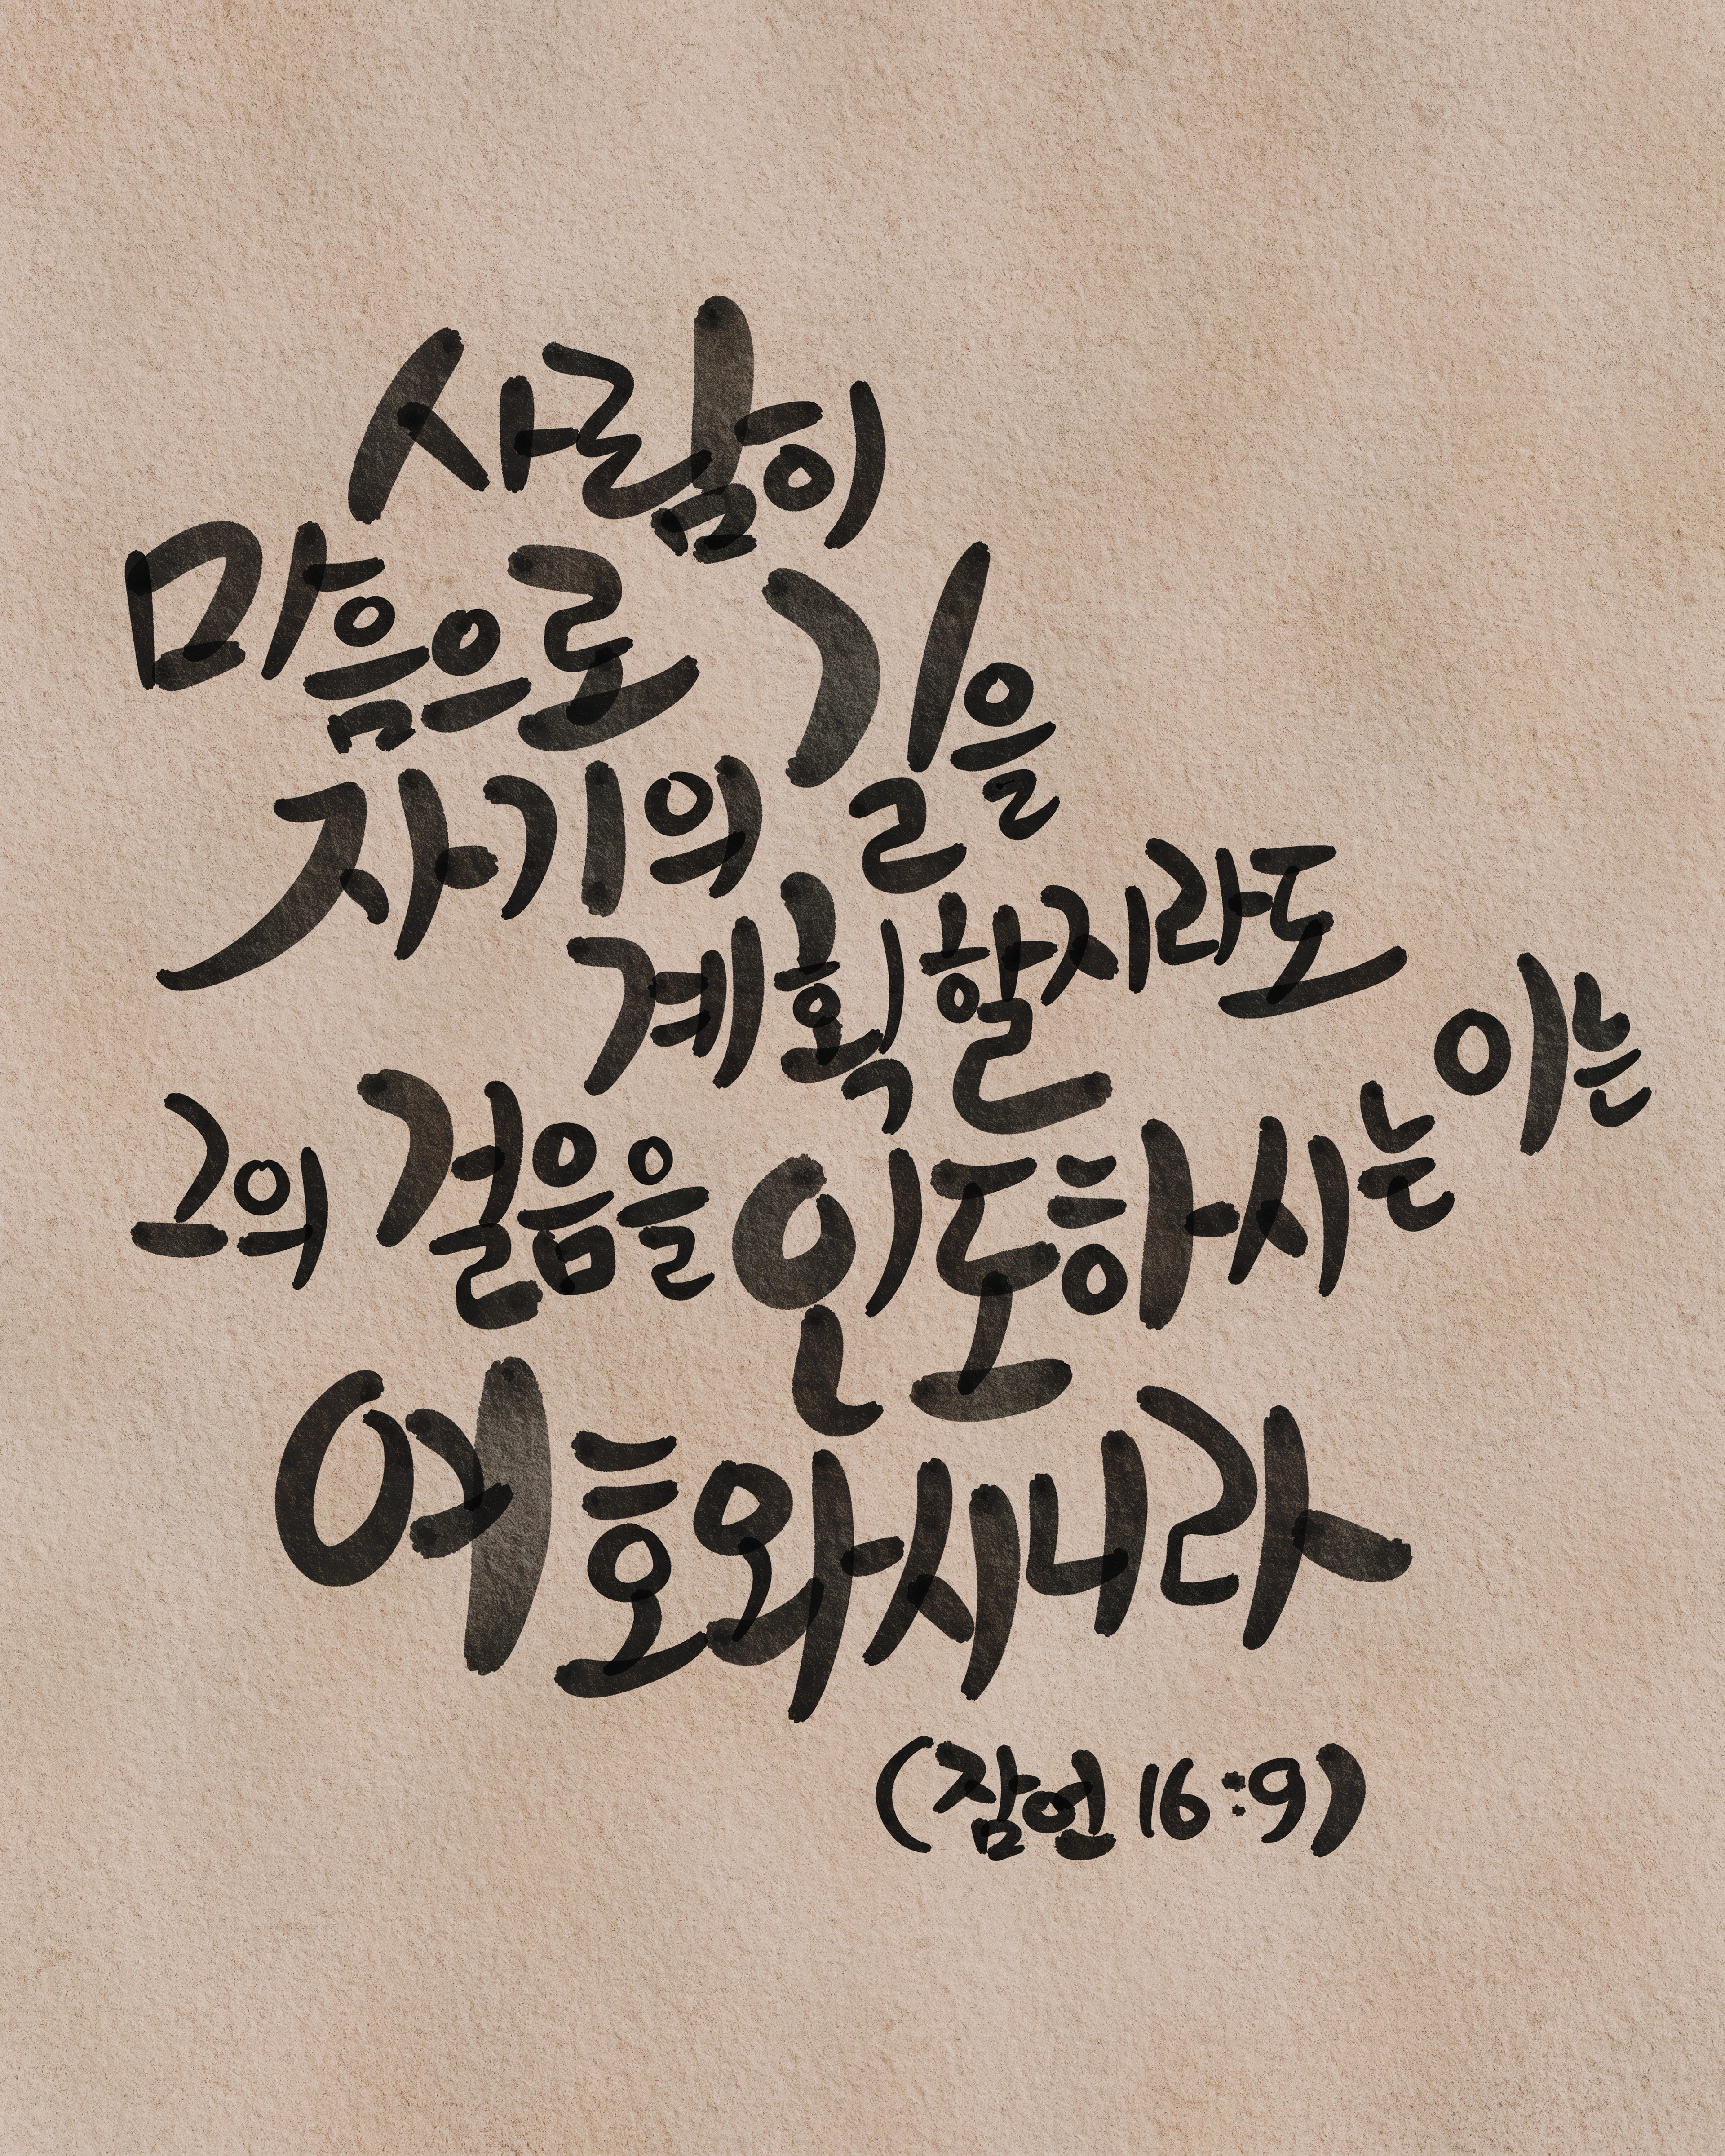 사람이
마음으로
자기의 길을
계획할지라도
그의 걸음을 인도하시는 이는
여호와시니라
(잠언 16:9)